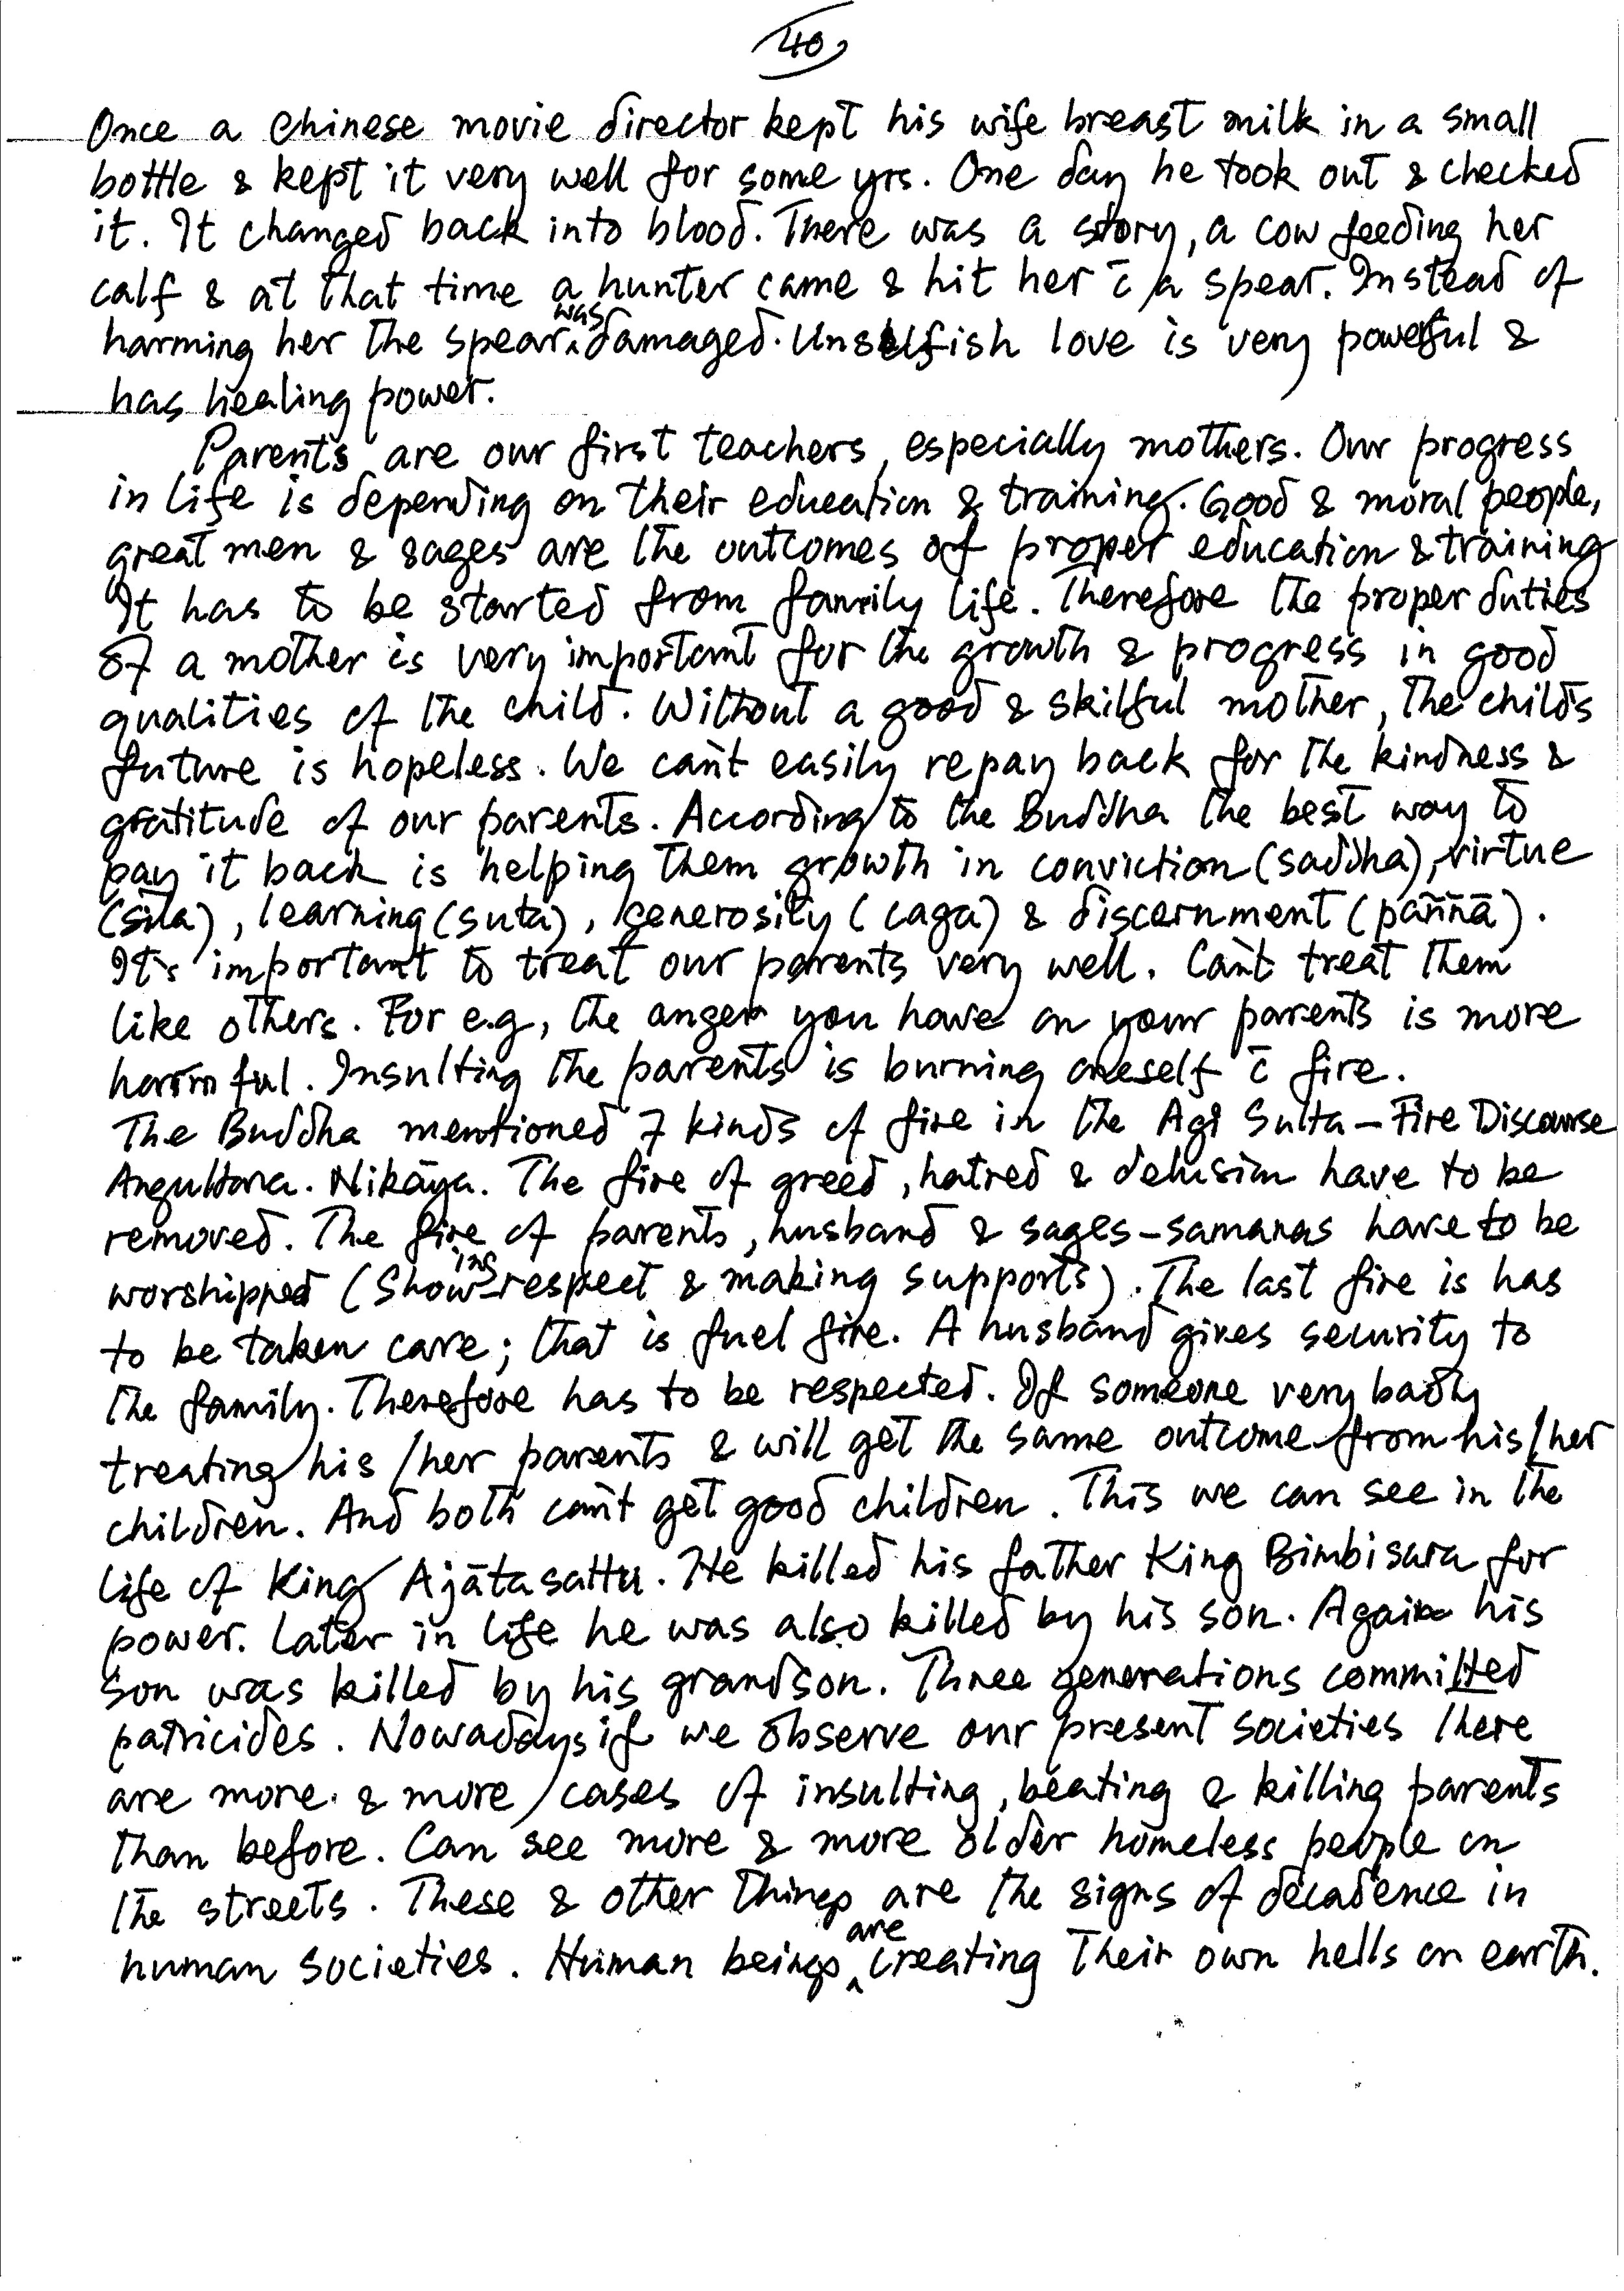 40
Once a chinese movie director kept his wife breast milk in a small
bottle & kept it very well for some yrs. One day he took out & checked
it. It changed back into blood. There was a story, a cow feeding her
calf & at that time a hunter came & hit her c̄ a spear. Instead of
harming her the spear was damaged. Unselfish love is very powerful &
has healing power.
Parents are our first teachers, especially mothers. Our progress
in life is depending on their education & training. Good & moral people,
great men & sages are the outcomes of proper education & training
It has to be started from family life. Therefore the proper duties
of a mother is very important for the growth & progress in good
qualities of the child. Without a good & skilful mother, the child's
future is hopeless. We can't easily repay back for the kindness &
gratitude of our parents. According to the Buddha the best way to
pay it back is helping them growth in conviction (saddha), virtue
(sīla), learning (suta), generosity (caga) & discernment (paññā).
It's important to treat our parents very well. Can't treat them
like others. For e.g, the anger you have on your parents is more
harmful. Insulting the parents is burning oneself c̄ fire.
The Buddha mentioned 7 kinds of fire in the Agi Sutta – Fire Discourse
Anguttara. Nikāya. The fire of greed, hatred & delusion have to be
removed. The fire of parents, husband & sages – samanas have to be
worshipped (Showing respect & making supports). The last fire is has
to be taken care; that is fuel fire. A husband gives security to
the family. Therefore has to be respected. If someone very badly
treating his/her parents & will get the same outcome from his/her
children. And both can't get good children. This we can see in the
life of King Ajātasattu. He killed his father King Bimbisara for
power. Later in life he was also killed by his son. Again his
son was killed by his grandson. Three generations committed
patricides. Nowadays if we observe our present societies there
are more & more cases of insulting, beating & killing parents
than before. Can see more & more older homeless people on
the streets. These & other things are the signs of decadence in
human societies. Human beings are creating their own hells on earth.